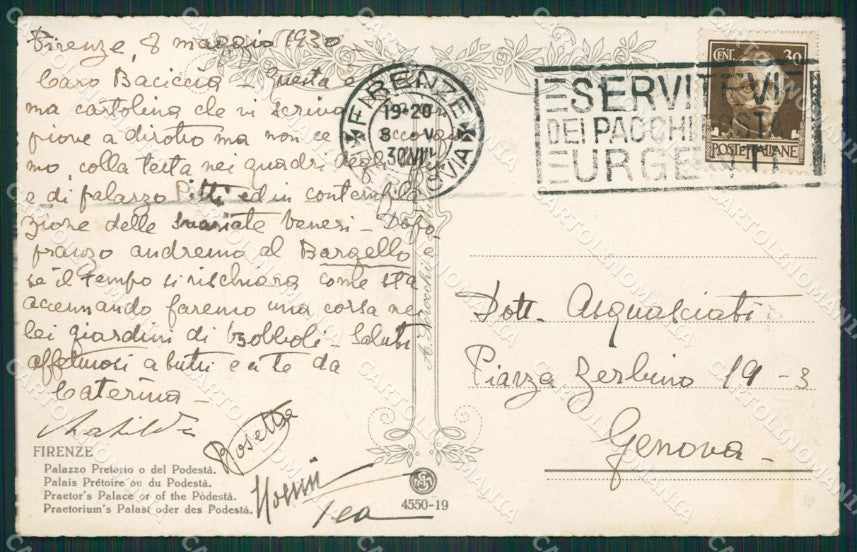 Firenze, 8 maggio 1930
Caro Baciccia - Questa è
ma cartolina che vi scrivia
piove a dirotto ma non ce
mo, colla testa nei quadri degli
e di palazzo Pitti ed in contempla
zione delle svariate Veneri - Dopo
pranzo andremo al Bargello e
se il tempo si rischiara come sta
accennando faremo una corsa nei
bei giardini di Bobboli - Saluti
affettuosi a tutti e a te da
Caterina -
Matilde
Rosetta
Tea
FIRENZE
Palazzo Pretorio o del Podestà.
Palais Prétoire ou du Podestà.
Praetor's Palace or of the Pòdestà.
Praetorium's Palast oder des Podestà.
4550-19
FIRENZE
19-20
8 - V
30 VIII
FERROVIA
SERVITEVI
DEI PACCHI POSTALI
URGENTI
CENT. 30
POSTE ITALIANE
Dott. Asqualciati
Piazza Zerbino 19-3
Genova -
CARTOLINOMANIA